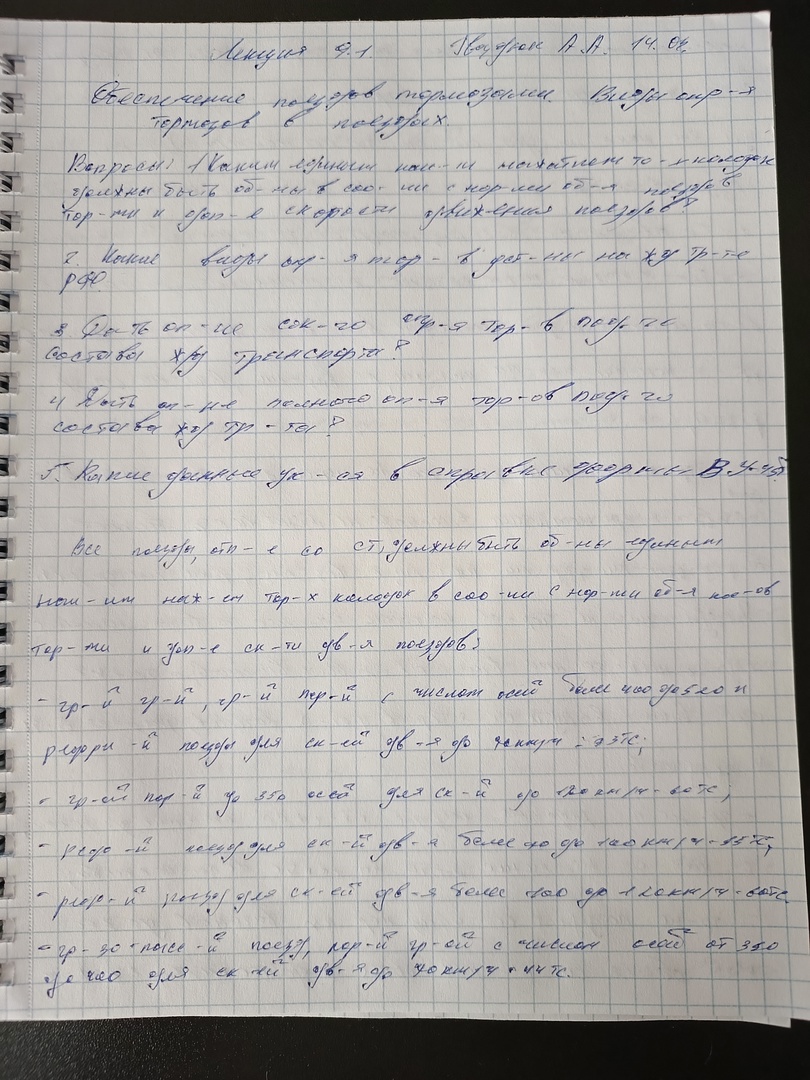 Лекция 9.1. А.А. 14.02.
Обеспечение поездов тормозами. Виды опр-я
тормозов в поездах.
Вопросы: 1 Каким единым наи-м нажатием то-х колодок
должны быть об-ны в соо-ии с нор-ми об-я поездов
тор-ми и доп-е скорости движения поездов?
2. Какие виды опр-я тор-в уст-ны на ж/д тр-те
РФ.
3 Дать оп-ие сок-го опр-я тор-в поез. го
состава ж/д транспорта?
4 Дать оп-ие полного оп-я тор-ов поез. го
состава ж/д тр-та?
5. Какие данные ук-ся в справке формы ВУ-45?
Все поезда, отп-е со ст, должны быть об-ны единым
наи-им наж-ем тор-х колодок в соо-ии с нор-ми об-я пое-ов
тор-ми и доп-е ск-ти дв-я поездов:
- гр-й гр-й, гр-й пор-й с числом осей более 400 до 520 и
рефри-й поезда для ск-ей дв-я до км/ч
- гр-ой пор-й до 350 осей для ск-й до км/ч
- рефр-й поезд для ск-й дв-я более до 100 км/ч - 55 тс,
- реф-й поезд для ск-ей дв-я более 100 до 120 км/ч - 60 тс
- гр-го-пасс-й поезд, пор-й гр-ой с числом осей от 350
до 400 для ск-ей дв-я до км/ч - 44 тс.